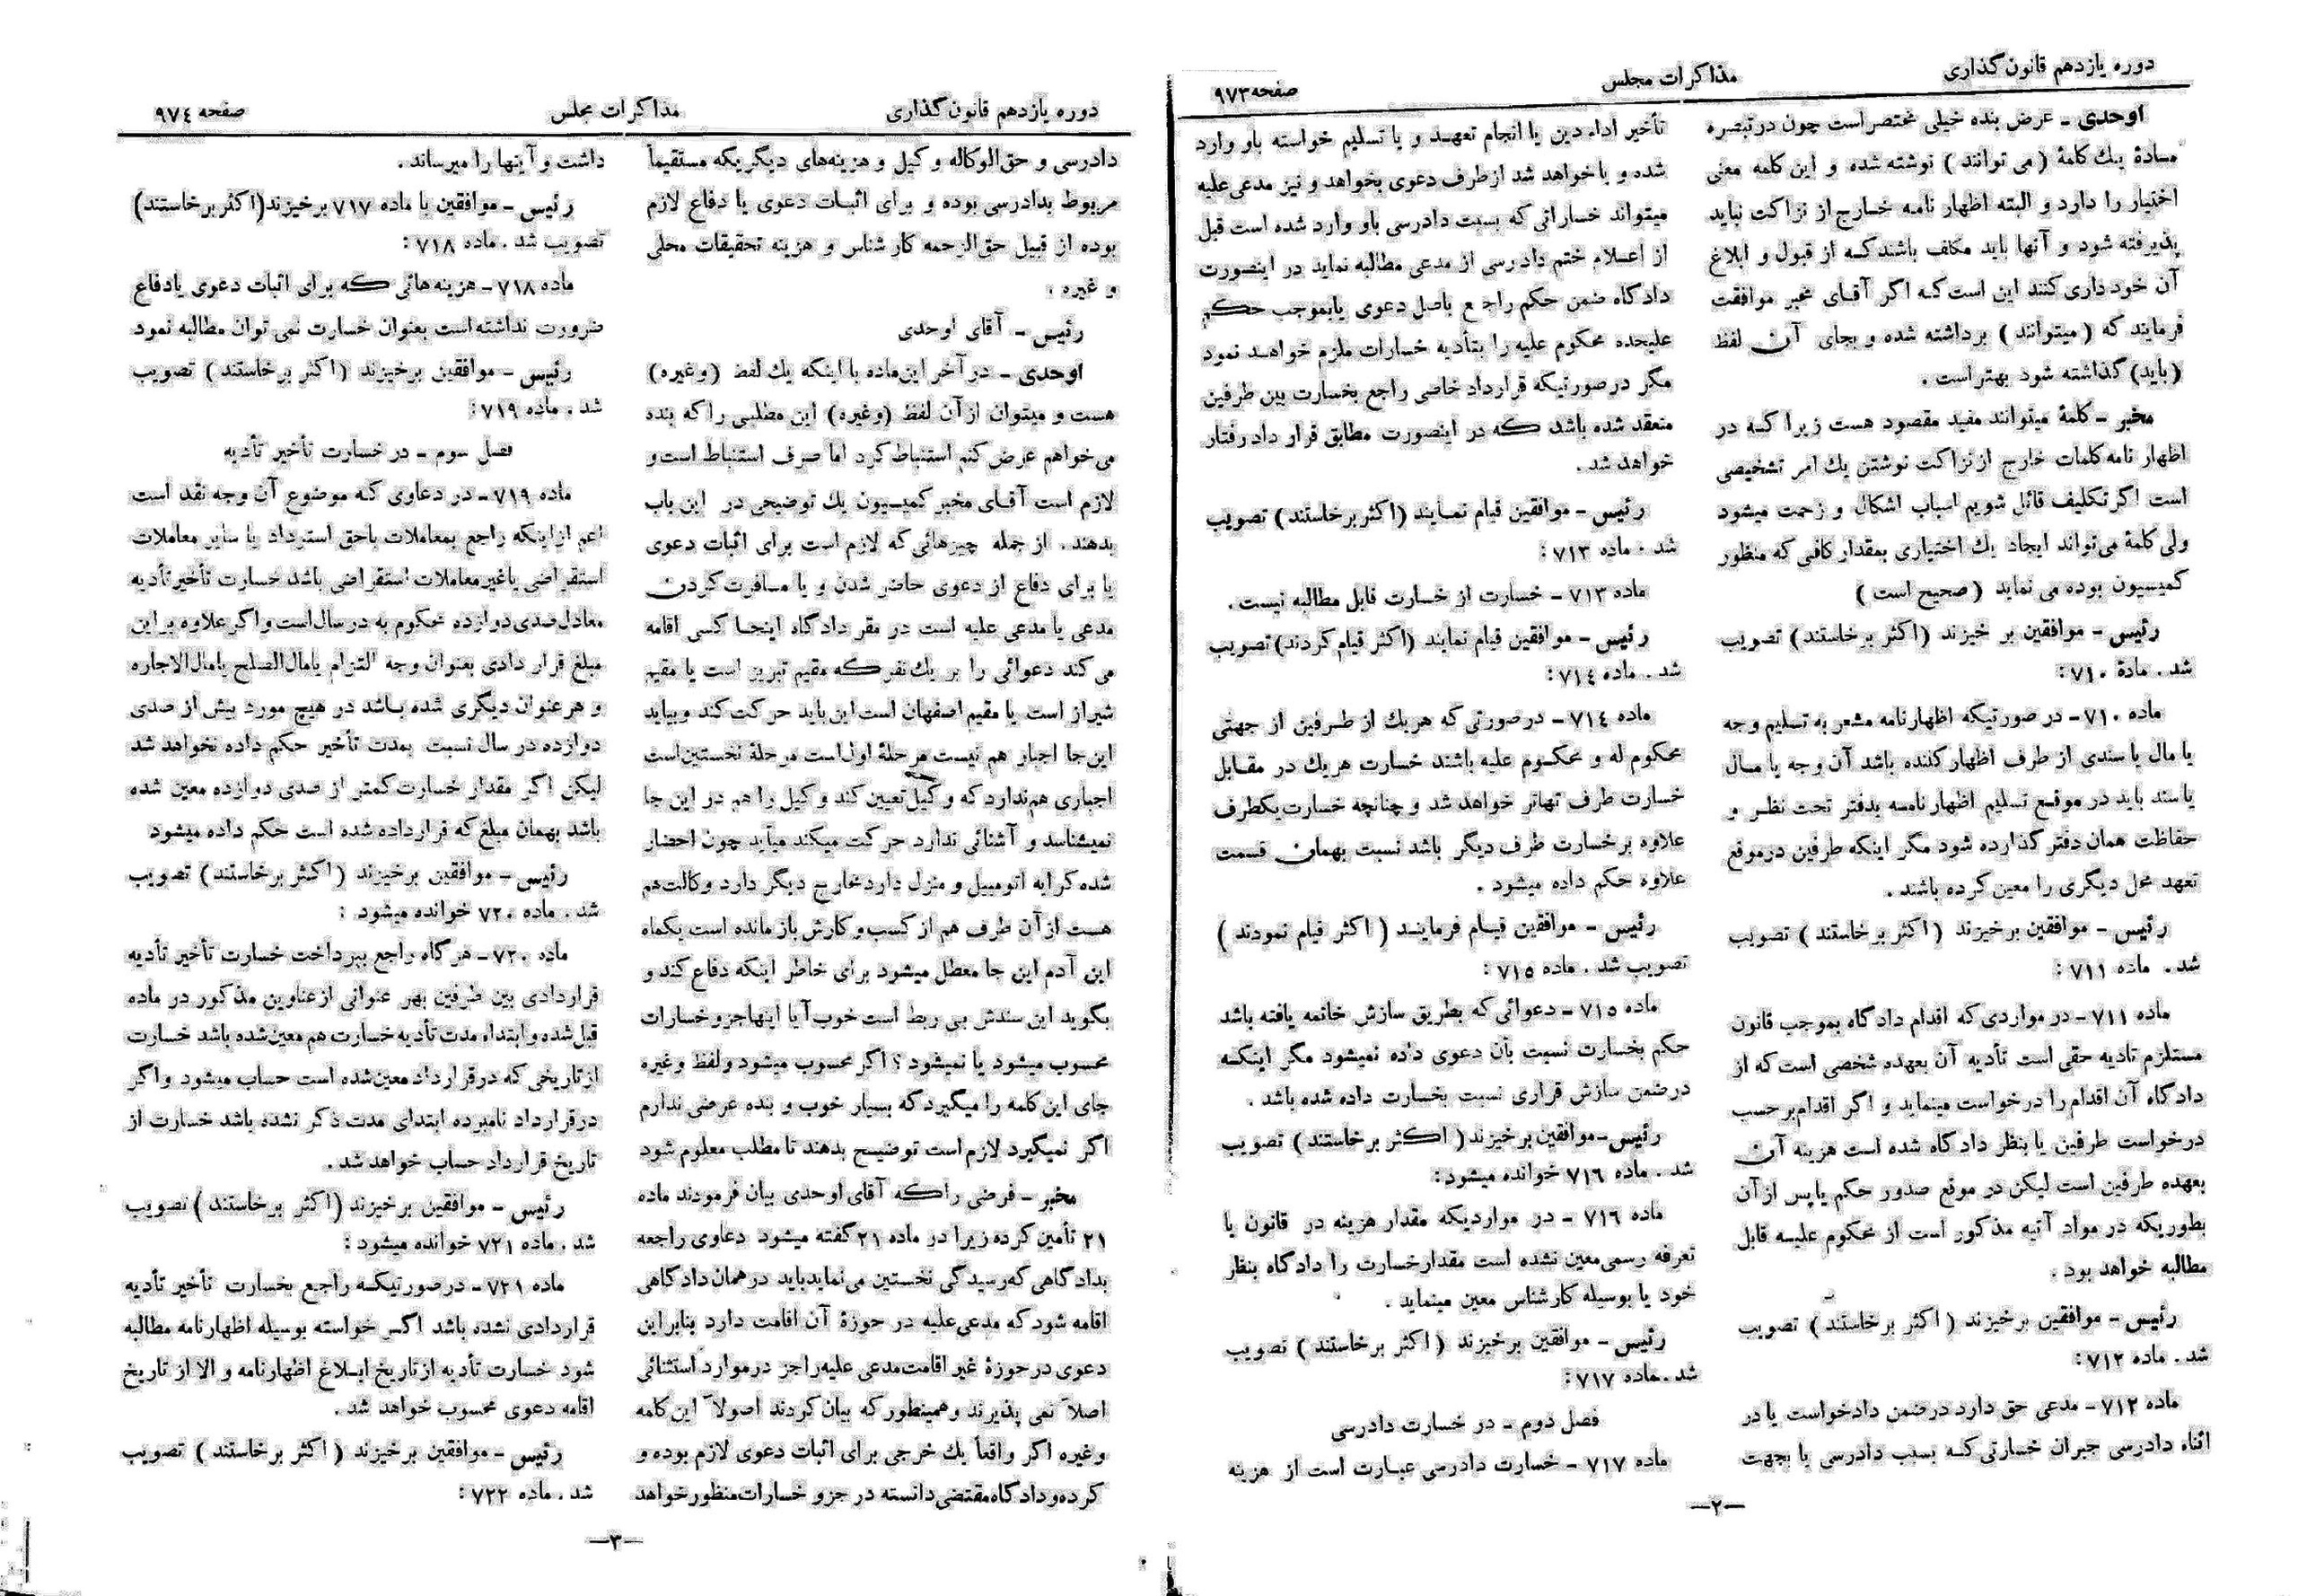 دوره یازدهم قانون‌گذاری
مذاکرات مجلس
صفحه ۹۷۳
اوحدی ـ عرض بنده خیلی مختصر است چون در تبصره
مادهٔ یک کلمهٔ (می توانند) نوشته شده و این کلمه معنی
اختیار را دارد و البته اظهار نامه خارج از نزاکت نباید
پذیرفته شود و آنها باید مکلف باشند که از قبول و ابلاغ
آن خود داری کنند این است که اگر آقای مخبر موافقت
فرمایند که (میتوانند) برداشته شده و بجای آن لفظ
(باید) گذاشته شود بهتر است .
مخبر ـ کلمهٔ میتوانند مفید مقصود هست زیرا که در
اظهار نامه کلمات خارج از نزاکت نوشتن یک امر تشخیصی
است اگر تکلیف قائل شویم اسباب اشکال و زحمت میشود
ولی کلمهٔ می‌تواند ایجاد یک اختیاری بمقدار کافی که منظور
کمیسیون بوده می نماید (صحیح است)
رئیس ـ موافقین بر خیزند (اکثر برخاستند) تصویب
شد . مادهٔ ۷۱۰:
ماده ۷۱۰ ـ در صورتیکه اظهارنامه مشعر به تسلیم وجه
یا مال یا سندی از طرف اظهار کننده باشد آن وجه یا مال
یا سند باید در موقع تسلیم اظهار نامه بدفتر تحت نظر و
حفاظت همان دفتر گذارده شود مگر اینکه طرفین در موقع
تعهد محل دیگری را معین کرده باشند .
رئیس ـ موافقین برخیزند (اکثر برخاستند) تصویب
شد . ماده ۷۱۱:
ماده ۷۱۱ ـ در مواردی که اقدام دادگاه بموجب قانون
مستلزم تادیه حقی است تأدیه آن بعهده شخصی است که از
دادگاه آن اقدام را درخواست مینماید و اگر اقدام بر حسب
درخواست طرفین یا بنظر دادگاه شده است هزینه آن
بعهده طرفین است لیکن در موقع صدور حکم یا پس از آن
بطوریکه در مواد آتیه مذکور است از محکوم علیه قابل
مطالبه خواهد بود .
رئیس ـ موافقین برخیزند (اکثر برخاستند) تصویب
شد . ماده ۷۱۲:
ماده ۷۱۲ ـ مدعی حق دارد در ضمن دادخواست یا در
اثناء دادرسی جبران خسارتی که بسبب دادرسی یا بجهت
تأخیر اداء دین یا انجام تعهد و یا تسلیم خواسته باو وارد
شده و یا خواهد شد از طرف دعوی بخواهد و نیز مدعی علیه
میتواند خساراتی که بسبت دادرسی باو وارد شده است قبل
از اعلام ختم دادرسی از مدعی مطالبه نماید در اینصورت
دادگاه ضمن حکم راجع باصل دعوی یا بموجب حکم
علیحده محکوم علیه را بتأدیه خسارات ملزم خواهد نمود
مگر در صورتیکه قرارداد خاصی راجع بخسارت بین طرفین
منعقد شده باشد که در اینصورت مطابق قرار داد رفتار
خواهد شد .
رئیس ـ موافقین قیام نمایند (اکثر برخاستند) تصویب
شد . ماده ۷۱۳:
ماده ۷۱۳ ـ خسارت از خسارت قابل مطالبه نیست .
رئیس ـ موافقین قیام نمایند (اکثر قیام کردند) تصویب
شد . ماده ۷۱٤:
ماده ۷۱٤ ـ در صورتی که هر یک از طرفین از جهتی
محکوم له و محکوم علیه باشند خسارت هر یک در مقابل
خسارت طرف تهاتر خواهد شد و چنانچه خسارت یکطرف
علاوه بر خسارت طرف دیگر باشد نسبت بهمان قسمت
علاوه حکم داده میشود .
رئیس ـ موافقین قیام فرمایند (اکثر قیام نمودند)
تصویب شد . ماده ۷۱۵:
ماده ۷۱۵ ـ دعوائی که بطریق سازش خاتمه یافته باشد
حکم بخسارت نسبت بآن دعوی داده نمیشود مگر اینکه
در ضمن سازش قراری نسبت بخسارت داده شده باشد .
رئیس ـ موافقین برخیزند (اکثر برخاستند) تصویب
شد . ماده ۷۱۶ خوانده میشود:
ماده ۷۱۶ ـ در مواردیکه مقدار هزینه در قانون یا
تعرفه رسمی معین نشده است مقدار خسارت را دادگاه بنظر
خود یا بوسیله کارشناس معین مینماید .
رئیس ـ موافقین برخیزند (اکثر برخاستند) تصویب
شد . ماده ۷۱۷:
فصل دوم ـ در خسارت دادرسی
ماده ۷۱۷ ـ خسارت دادرسی عبارت است از هزینه
—۲—
دوره یازدهم قانون‌گذاری
مذاکرات مجلس
صفحه ۹۷٤
دادرسی و حق‌الوکاله وکیل و هزینه‌های دیگریکه مستقیماً
مربوط بدادرسی بوده و برای اثبات دعوی یا دفاع لازم
بوده از قبیل حق‌الزحمه کارشناس و هزینه تحقیقات محلی
و غیره .
رئیس ـ آقای اوحدی
اوحدی ـ در آخر این ماده با اینکه یک لفظ (وغیره)
هست و میتوان از آن لفظ (وغیره) این مطلبی را که بنده
می‌خواهم عرض کنم استنباط کرد اما صرف استنباط است و
لازم است آقای مخبر کمیسیون یک توضیحی در این باب
بدهند . از جمله چیزهائی که لازم است برای اثبات دعوی
یا برای دفاع از دعوی حاضر شدن و یا مسافرت کردن
مدعی یا مدعی علیه است در مقر دادگاه اینجا کسی اقامه
می کند دعوائی را بر یک نفر که مقیم تبریز است یا مقیم
شیراز است یا مقیم اصفهان است این باید حرکت کند و بیاید
این جا اجبار هم نیست مرحلهٔ اول است مرحلهٔ نخستین است
اجباری هم ندارد که وکیل تعیین کند وکیل را هم در این جا
نمیشناسد و آشنائی ندارد حرکت میکند میآید چون احضار
شده کرایه اتومبیل و منزل دارد مخارج دیگر دارد وکالت هم
هست از آن طرف هم از کسب و کارش باز مانده است یکماه
این آدم این جا معطل میشود برای خاطر اینکه دفاع کند و
بگوید این سندش بی ربط است خوب آیا اینها جزو خسارات
محسوب میشود یا نمیشود ؟ اگر محسوب میشود و لفظ وغیره
جای این کلمه را میگیرد که بسیار خوب و بنده عرضی ندارم
اگر نمیگیرد لازم است توضیح بدهند تا مطلب معلوم شود
مخبر ـ فرضی را که آقای اوحدی بیان فرمودند ماده
۲۱ تأمین کرده زیرا در ماده ۲۱ گفته میشود دعاوی راجعه
بدادگاهی که رسیدگی نخستین می‌نماید باید در همان دادگاهی
اقامه شود که مدعی علیه در حوزهٔ آن اقامت دارد بنابراین
دعوی در حوزهٔ غیر اقامت مدعی علیه را جز در موارد استثنائی
اصلاً نمی پذیرند و همینطور که بیان کردند اصولاً این کلمه
وغیره اگر واقعاً یک خرجی برای اثبات دعوی لازم بوده و
کرده و دادگاه مقتضی دانسته در جزو خسارات منظور خواهد
داشت و آنها را میرساند .
رئیس ـ موافقین با ماده ۷۱۷ برخیزند (اکثر برخاستند)
تصویب شد . ماده ۷۱۸:
ماده ۷۱۸ ـ هزینه‌هائی که برای اثبات دعوی یا دفاع
ضرورت نداشته است بعنوان خسارت نمی توان مطالبه نمود
رئیس ـ موافقین برخیزند (اکثر برخاستند) تصویب
شد . ماده ۷۱۹:
فصل سوم ـ در خسارت تأخیر تأدیه
ماده ۷۱۹ ـ در دعاوی که موضوع آن وجه نقد است
اعم از اینکه راجع بمعاملات باحق استرداد یا سایر معاملات
استقراضی یا غیر معاملات استقراضی باشد خسارت تأخیر تأدیه
معادل صدی دوازده محکوم به در سال است و اگر علاوه بر این
مبلغ قراردادی بعنوان وجه التزام یا مال‌الصلح یا مال‌الاجاره
و هر عنوان دیگری شده باشد در هیچ مورد بیش از صدی
دوازده در سال نسبت بمدت تأخیر حکم داده نخواهد شد
لیکن اگر مقدار خسارت کمتر از صدی دوازده معین شده
باشد بهمان مبلغ که قرارداده شده است حکم داده میشود
رئیس ـ موافقین برخیزند (اکثر برخاستند) تصویب
شد . ماده ۷۲۰ خوانده میشود :
ماده ۷۲۰ ـ هرگاه راجع بپرداخت خسارت تأخیر تأدیه
قراردادی بین طرفین بهر عنوانی از عناوین مذکور در ماده
قبل شده و ابتداء مدت تأدیه خسارت هم معین شده باشد خسارت
از تاریخی که در قرارداد معین شده است حساب میشود و اگر
در قرارداد نامبرده ابتدای مدت ذکر نشده باشد خسارت از
تاریخ قرارداد حساب خواهد شد .
رئیس ـ موافقین برخیزند (اکثر برخاستند) تصویب
شد . ماده ۷۲۱ خوانده میشود :
ماده ۷۲۱ ـ در صورتیکه راجع بخسارت تأخیر تأدیه
قراردادی نشده باشد اگر خواسته بوسیله اظهارنامه مطالبه
شود خسارت تأدیه از تاریخ ابلاغ اظهارنامه و الا از تاریخ
اقامه دعوی محسوب خواهد شد .
رئیس ـ موافقین برخیزند (اکثر برخاستند) تصویب
شد . ماده ۷۲۲ :
—۳—